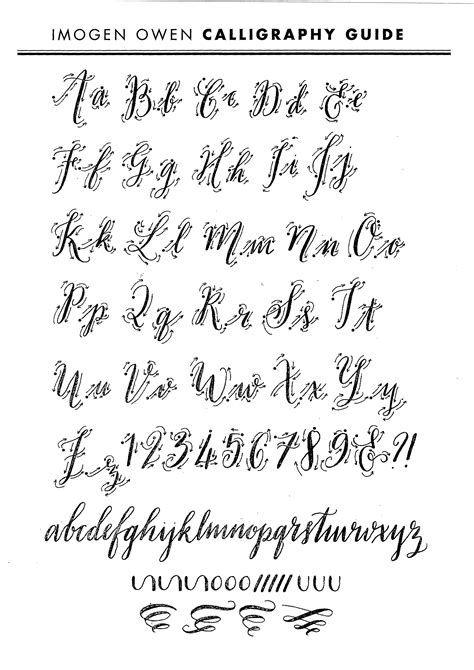 IMOGEN OWEN CALLIGRAPHY GUIDE
Aa Bb Cc Dd Ee
Ff Gg Hh Ii Jj
Kk Ll Mm Nn Oo
Pp Qq Rr Ss Tt
Uu Vv Ww Xx Yy
Zz 1 2 3 4 5 6 7 8 9 & ?!
abcdefghijklmnopqrstuvwxyz